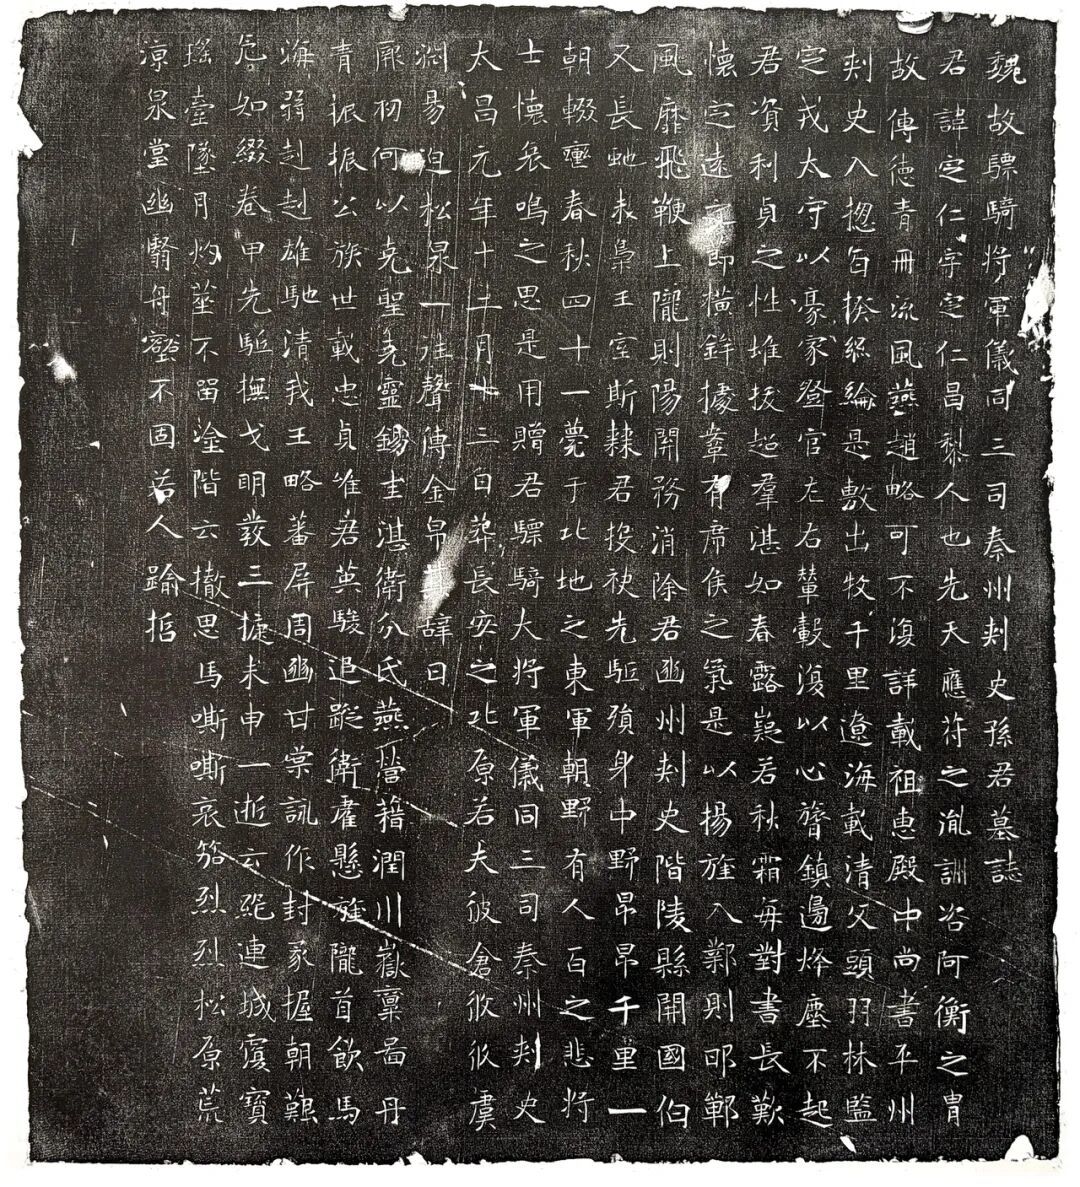 魏故驃騎將軍儀同三司秦州刺史孫君墓誌
君諱定仁字定仁昌黎人也先天應苻之胤訓咨阿衡之胄
故傳德青冊流風燕趙略可不復詳載祖惠殿中尚書平州
刺史入揔百揆絲綸是敷出牧千里遼海載清父頭羽林監
定戎太守以豪家登官左右輦轂復以心膂鎮邊烽塵不起
君資利貞之性堆拔超羣湛如春露嶷若秋霜每對書長歎
懷定遠之即橫鉾據鞌有席侯之氣是以揚旌入鄴則邯鄲
風靡飛鞭上隴則陽開務消除君幽州刺史階陵縣開國伯
又長虵未梟王室斯隸君投袂先駈殞身中野昂昂千里一
朝輟壥春秋四十一薨于北地之東軍朝野有人百之悲將
士懷哀嗚之思是用贈君驃騎大將軍儀同三司秦州刺史
太昌元年十二月十三日葬長安之北原若夫彼倉攸攸虞
淵易迫松泉一往聲傳金帛辭曰
厥初何以克聖克靈錫圭湛衛分氏燕營籍潤川嶽稟啚丹
青振振公族世載忠貞唯君英駿追蹤衛霍懸旌隴首飲馬
海弱赳赳雄馳清我王略蕃屏周幽甘棠詠作封豕握朝艱
危如綴卷甲先駈撫戈明發三捷未申一逝云跪連城霣寶
瑤臺墜月灼筮不留塗階云撤思馬嘶嘶哀笳烈烈松原荒
涼泉堂幽翳舟壑不固若人踰悊